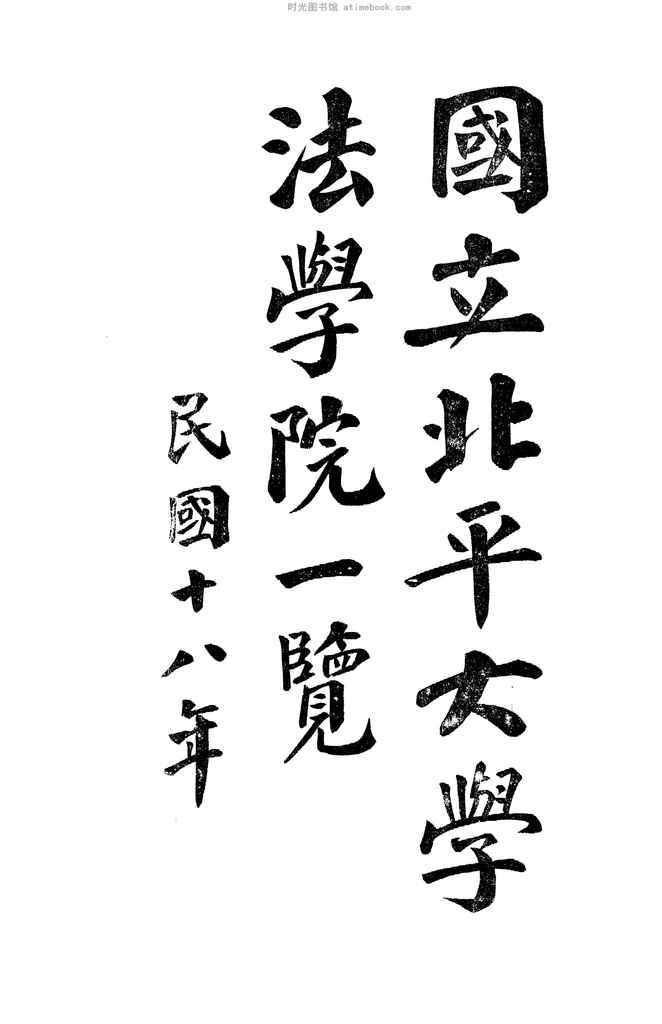 时光图书馆 atimebook.com
國立北平大學
法學院一覽
民國十八年